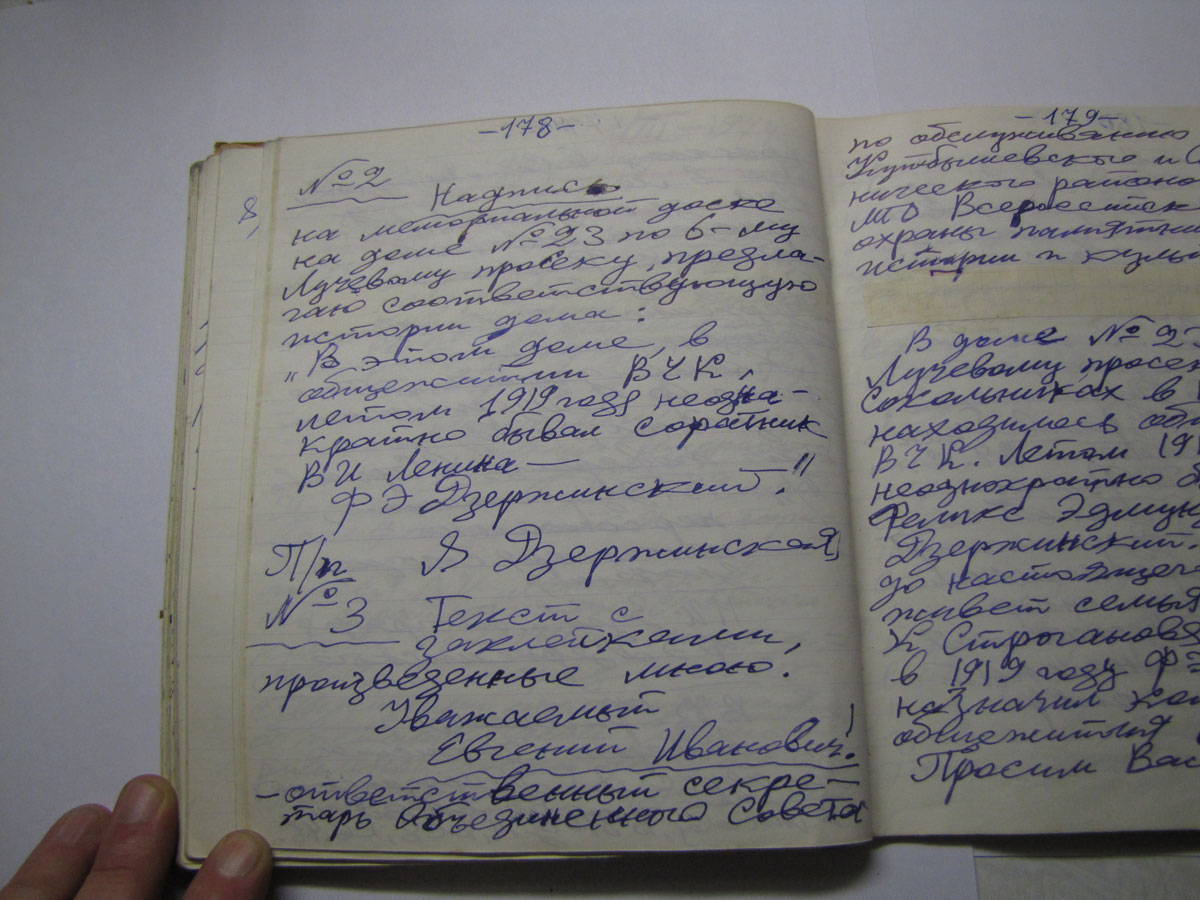 -178-
№2
Надпись
на мемориальной доске
на доме №23 по 6-му
Лучевому просеку, предла-
гаю соответствующую
истории дома:
„В этом доме, в
общежитии ВЧК,
летом 1919 года неодна-
кратно бывал соратник
ВИ Ленина —
ФЭ Дзержинский."
П/п Я Дзержинская,
№3 Текст с
заклейками,
произведенные мною.
Уважаемый
Евгений Иванович!
– ответственный секре-
тарь Объединенного Совета
-179-
по обслуживанию
Куйбышевского и
нического района
МО Всероссийск
охраны памятник
истории и культ
В доме № 23
Лучевому просек
Сокольниках в
находилось общ
ВЧК. Летом 191
неоднократно б
Феликс Эдмун
Дзержинский.
до настоящего
живет семья
К Строганова
в 1919 году ФЭ
назначил ком
общежития
Просим Вас